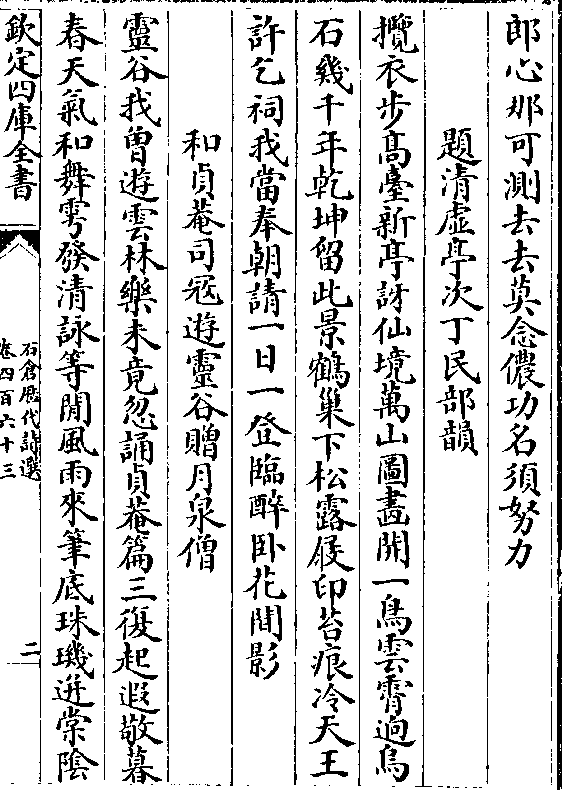 郎心那可測去去莫念儂功名須努力
題清虛亭次丁民部韻
攬衣步髙臺新亭訝仙境萬山圖畫開一鳥雲霄逈烏
石幾千年乾坤留此景鶴巢下松露屐印苔痕冷天王
許乞祠我當奉朝請一日一登臨醉卧花間影
和貞菴司冦遊靈谷贈月泉僧
靈谷我曾遊雲林樂未竟忽誦貞菴篇三復起遐敬暮
春天氣和舞雩發清詠等閒風雨來筆底珠璣迸棠陰
欽定四庫全書
石倉歴代詩選
卷四百六十三
二